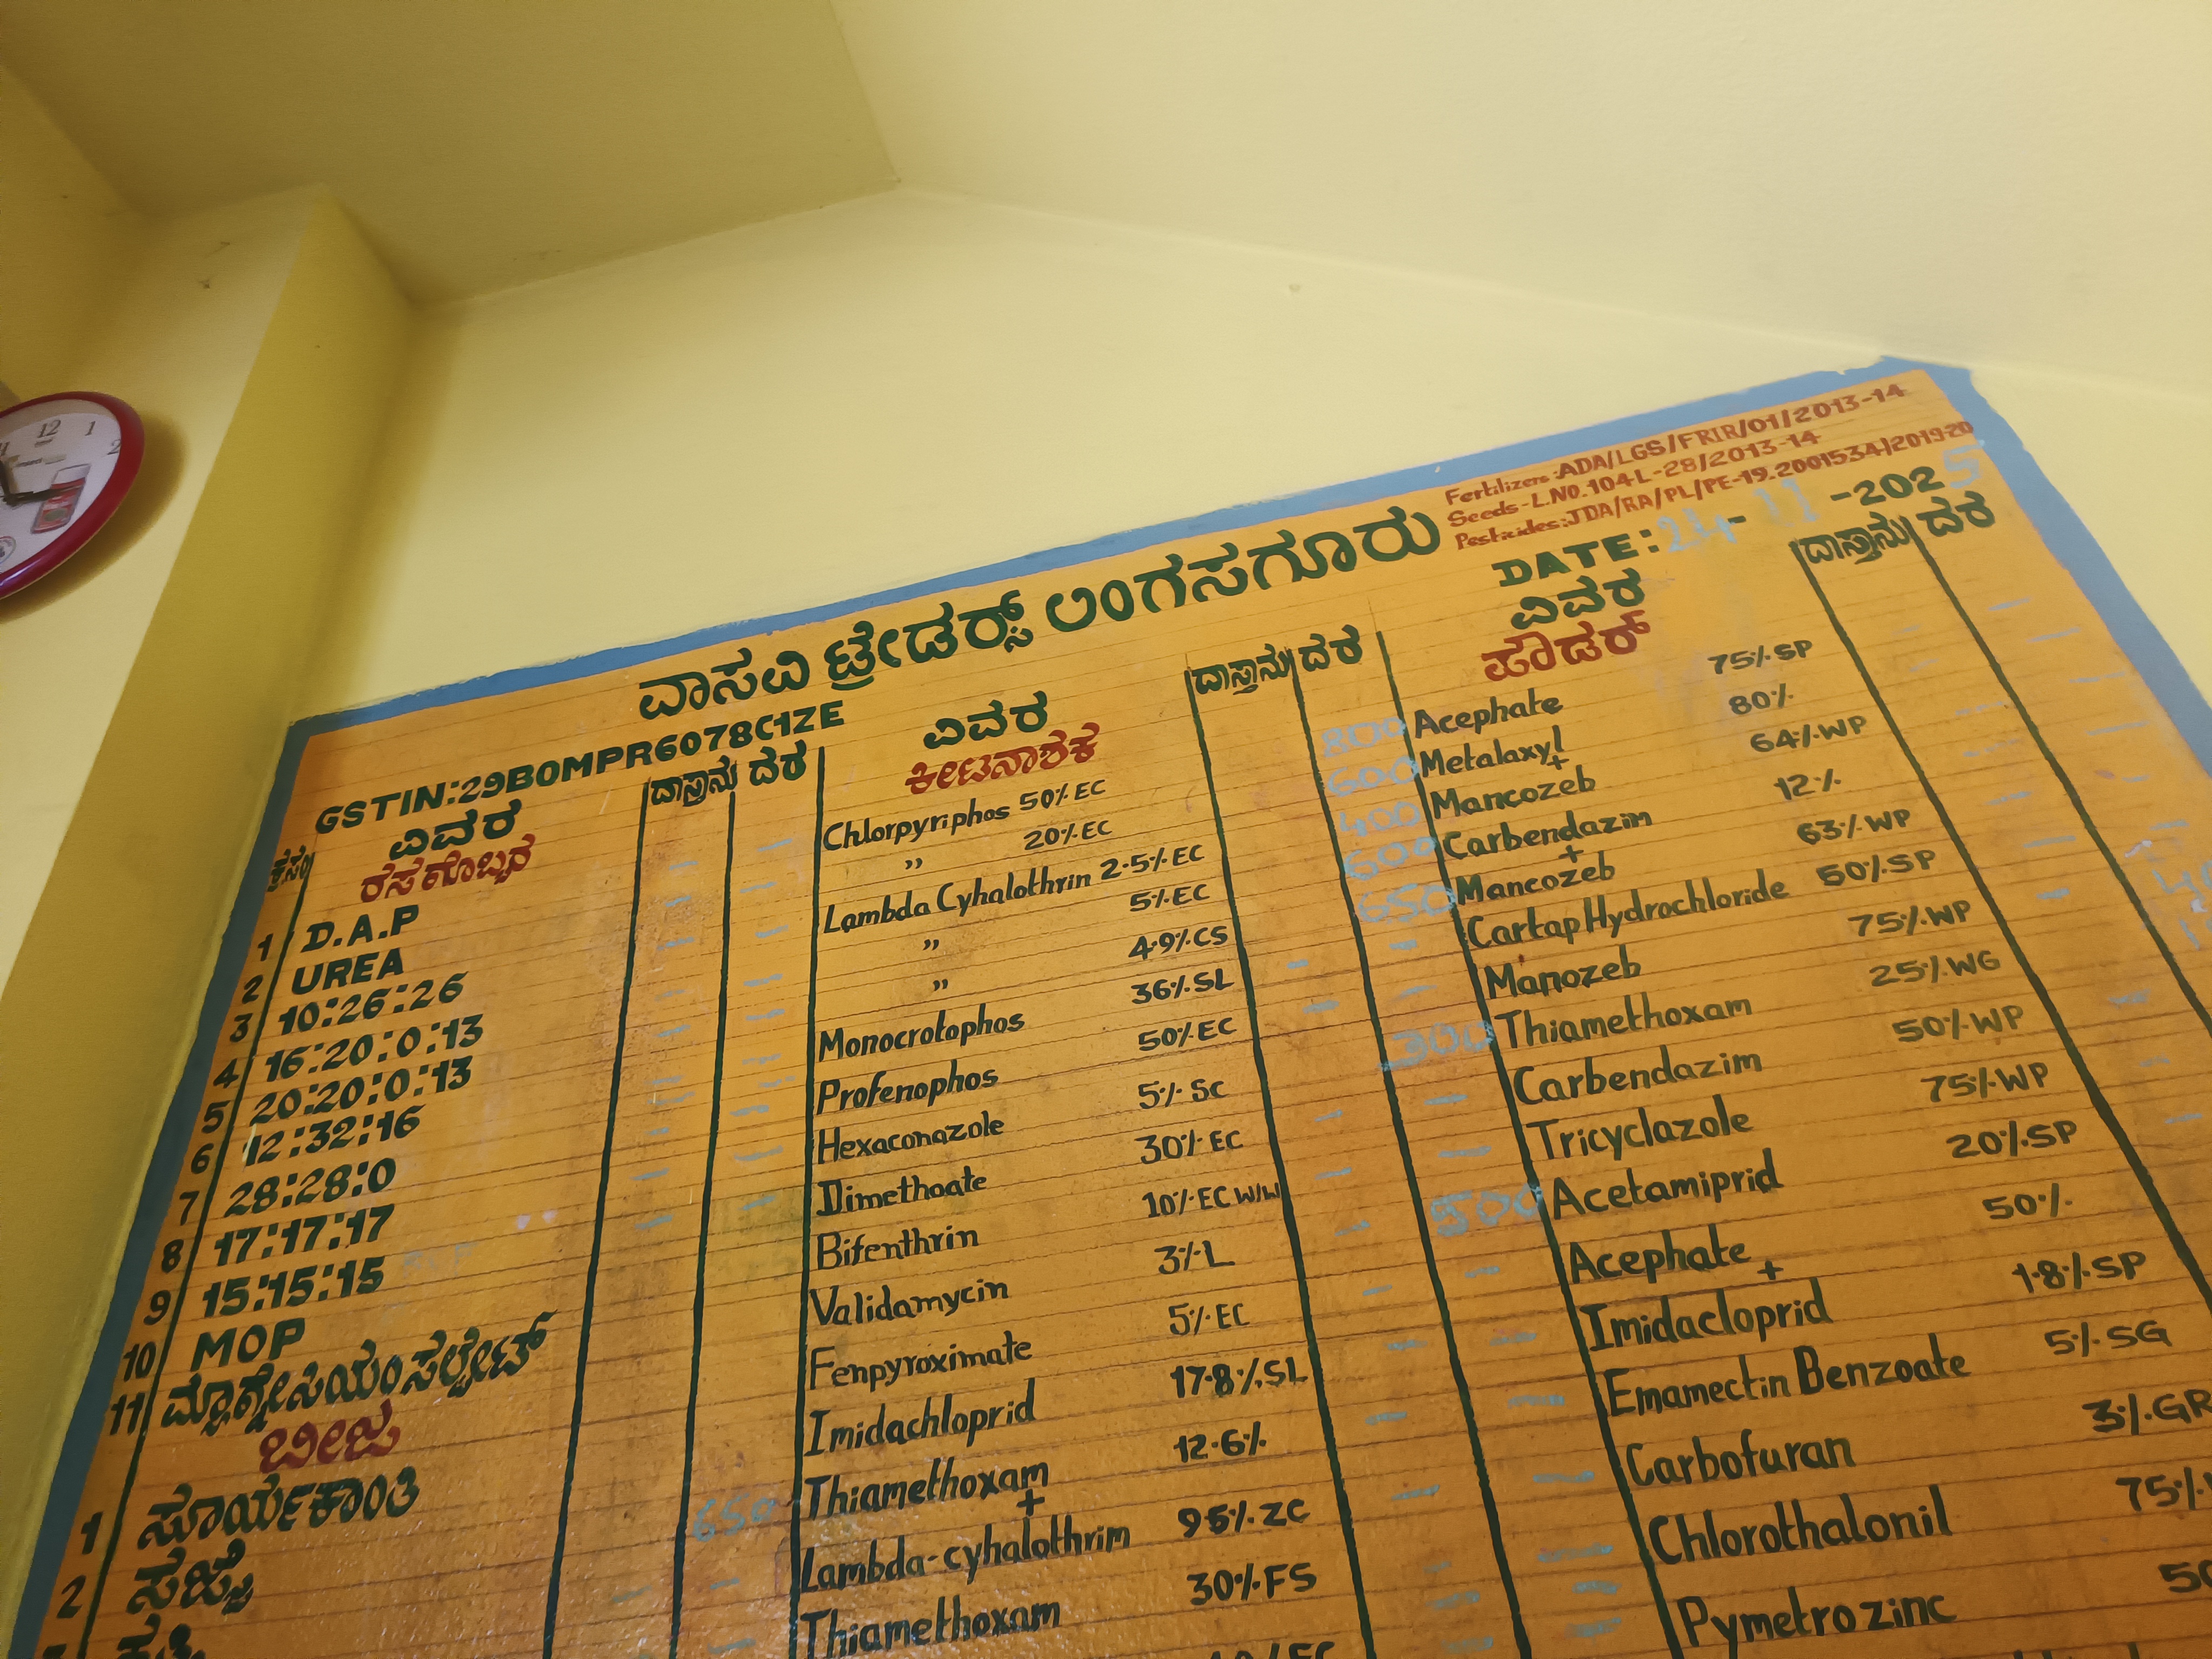 12
1
2
Fertilizers:ADA/LGS/FRIR/01/2013-14
Seeds-L.NO.104L-28/2013-14
Pesticides:JDA/RA/PL/PE-19.2001534/2019-20
ವಾಸವಿ ಟ್ರೇಡರ್ಸ್ ಲಿಂಗಸಗೂರು
DATE:24-11-2025
GSTIN:29BOMPR6078C1ZE
ಕ್ರ.ಸಂ ವಿವರ ದಾಸ್ತಾನು ದರ
ರಸಗೊಬ್ಬರ
1 D.A.P
2 UREA
3 10:26:26
4 16:20:0:13
5 20:20:0:13
6 12:32:16
7 28:28:0
8 17:17:17
9 15:15:15
10 MOP
11 ಮ್ಯಾಗ್ನೇಸಿಯಂ ಸಲ್ಫೇಟ್
ಬೀಜ
1 ಸೂರ್ಯಕಾಂತಿ 650
2 ಸಜ್ಜೆ
ವಿವರ ದಾಸ್ತಾನು ದರ
ಕೀಟನಾಶಕ
Chlorpyriphos 50% EC 800
" 20% EC 600
Lambda Cyhalothrin 2.5% EC 400
" 5% EC 600
" 4.9% CS 650
Monocrotophos 36% SL
Profenophos 50% EC
Hexaconazole 5% SC 300
Dimethoate 30% EC
Bifenthrin 10% EC W/W
Validamycin 3% L 500
Fenpyroximate 5% EC
Imidachloprid 17.8% SL
Thiamethoxam 12.6%
+
Lambda-cyhalothrim 95% ZC
Thiamethoxam 30% FS
ವಿವರ ದಾಸ್ತಾನು ದರ
ಪೌಡರ್
Acephate 75% SP
Metalaxyl 80%
+
Mancozeb 64% WP
Carbendazim 12%
+
Mancozeb 63% WP
Cartap Hydrochloride 50% SP
Manozeb 75% WP
Thiamethoxam 25% WG
Carbendazim 50% WP
Tricyclazole 75% WP
Acetamiprid 20% SP
Acephate 50%
+
Imidacloprid 1.8% SP
Emamectin Benzoate 5% SG
Carbofuran 3% GR
Chlorothalonil 75%
Pymetrozinc